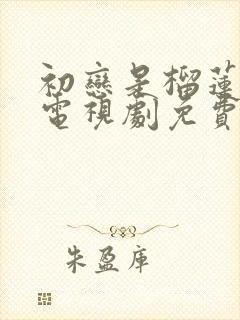 初戀是榴蓮
電視劇免費
朱盈庫